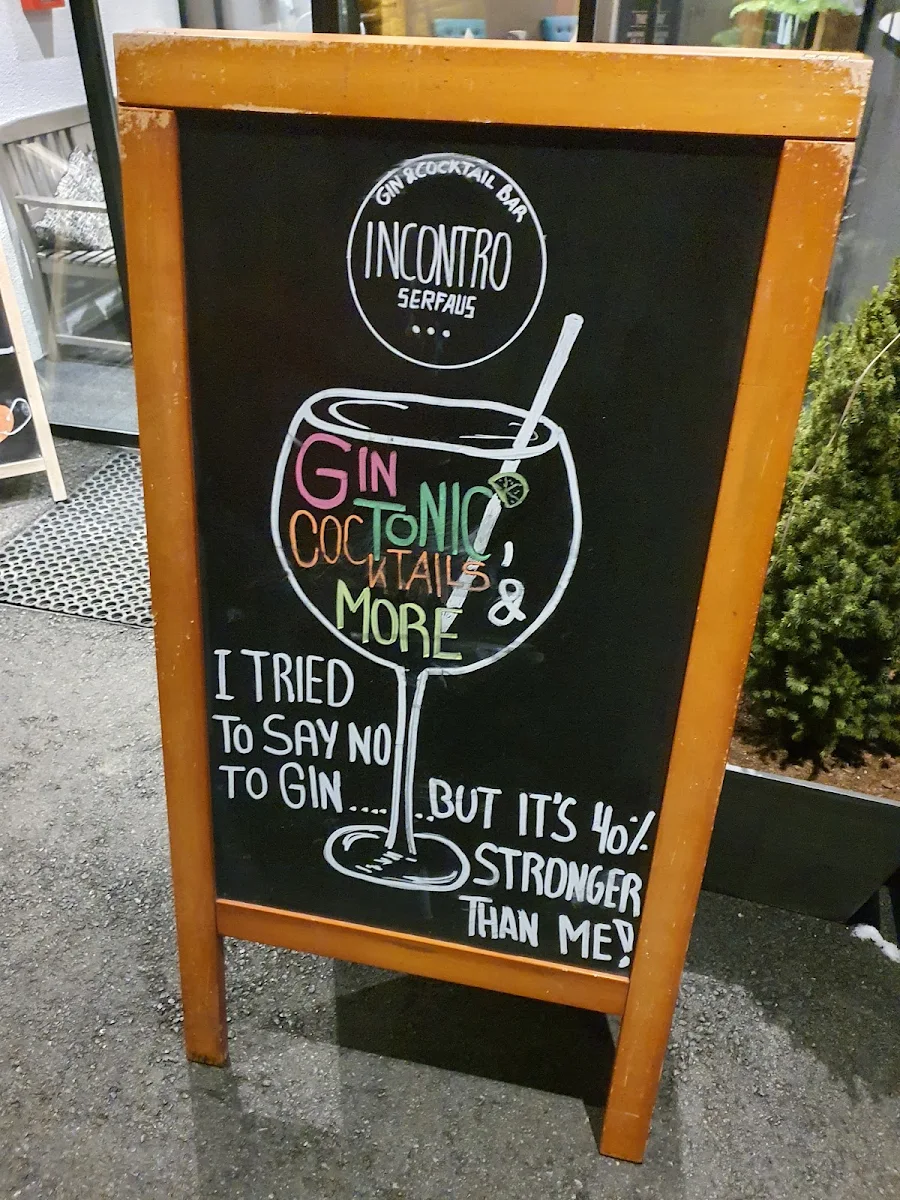 GIN & COCKTAIL BAR
INCONTRO
SERFAUS
...
GIN
TONIC,
COCKTAILS &
MORE
I TRIED
TO SAY NO
TO GIN....
..BUT IT'S 40%
STRONGER
THAN ME!